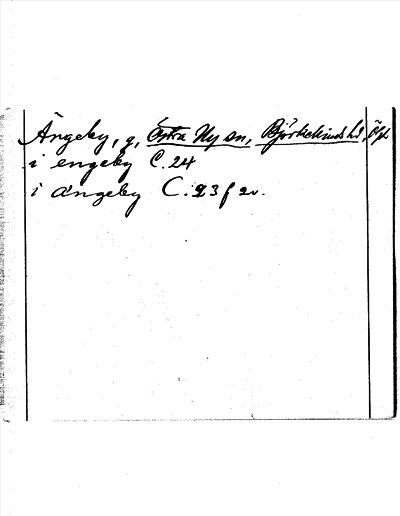 Ängeby, g, Östra Ny sn, Björkekinds hd, Ögl.
i engeby C. 24
i ængeby C. 23 f 2v.